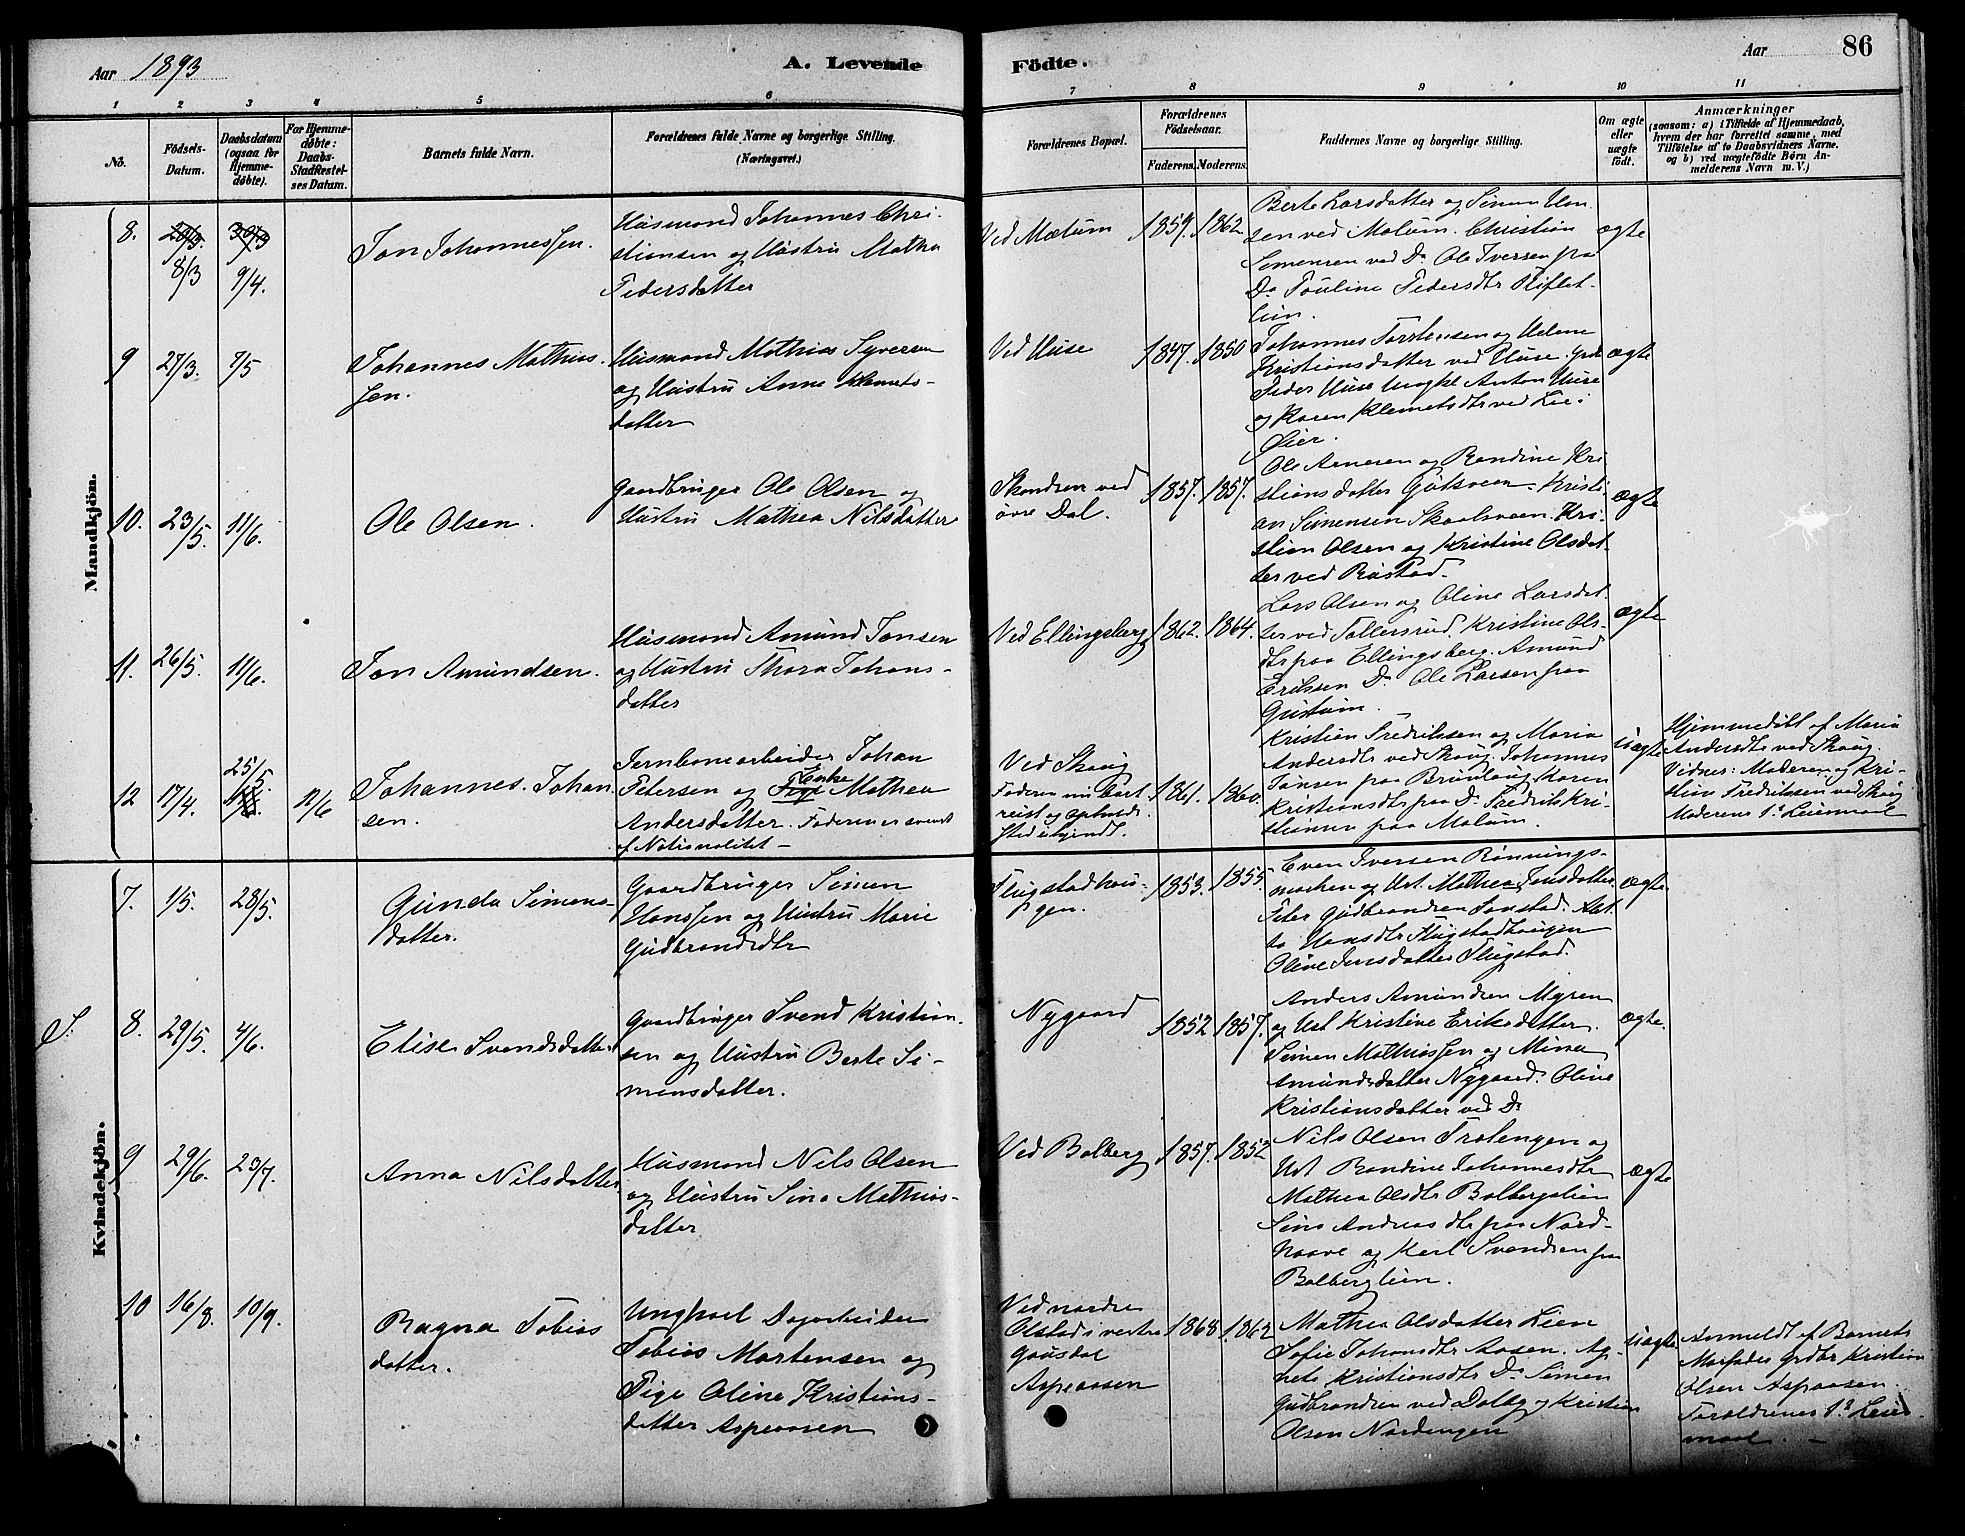 Aar 1893
A. Levende Födte.
Aar
86
1 2 3 4 5 6 7 8 9 10 11
No.
Födsels-
Datum.
Daabsdatum
(ogsaa for
Hjemme-
döbte).
For Hjemme-
döbte:
Daabs-
Stadfæstel-
ses Datum.
Barnets fulde Navn.
Forældrenes fulde Navne og borgerlige Stilling.
(Næringsvei.)
Forældrenes Bopæl.
Forældrenes
Födselsaar.
Faderens. Moderens.
Faddernes Navne og borgerlige Stilling.
Om ægte
eller
uægte
født.
Anmærkninger
(saasom: a) i Tilfælde af Hjemmedaab,
hvem der har forrettet samme, med
Tilföielse af to Daabsvidners Navne.
og b) ved uægtefödte Börn An-
melderens Navn m. V.)
Mandkjön.
8.
20/3.
8/3
30/3
9/4.
Jon Johannessen.
Husmand Johannes Chri-
stiansen og Hustru Mathea
Pedersdatter
Ved Mælum
1859. 1862.
Berte Larsdatter og Simen Han-
sen ved Mælum. Christian
Simensen ved Do Ole Iversen paa
Do Pauline Pedersdtr Riflet-
lien.
ægte
9 27/3. 7/5
Johannes Mathias-
sen.
Husmand Mathias Syversen
og Hustru Anne Klemets-
datter
Ved Huse
1847. 1850
Johannes Torstensen og Helene
Kristiansdatter ved Huse. Grdb
Peder Huse Ungkl Anton Huse
og Karen Klemetsdtr ved Lie i
Øier.
ægte
10. 23/5. 11/6.
Ole Olsen.
Gaardbruger Ole Olsen og
Hustru Mathea Nilsdatter
Skondsen ved
øvre Dal.
1857. 1857.
Ole Arnesen og Randine Kri-
stiansdatter Gutsveen. Kristi-
an Simensen Skaalsveen. Kri-
stian Olsen og Kristine Olsdat-
ter ved Rustad.
ægte
11. 26/5. 11/6.
Jon Amundsen.
Husmand Amund Jonsen
og Hustru Thora Johans-
datter
Ved Ellingsberg
1862. 1864.
Lars Olsen og Oline Larsdat
ter ved Tollersrud. Kristine Ols-
dtr paa Ellingsberg. Amund
Eriksen Do Ole Larsen paa
Gustum.
ægte
12 17/4.
25/5.
11/6
Johannes Johan
sen.
Jernbanearbeider Johan
Petersen og Pige Enke Mathea
Andersdatter. Faderen er svensk
af Nationalitet -
Ved Skoug
Faderen nu bort
reist og Opholds-
sted ubjendt.
1861. 1860.
Kristian Fredriksen og Maria
Andersdtr ved Skoug. Johannes
Jonsen paa Brunlaug Karen
Kristiansdtr paa Do Fredrik Kri-
stiansen paa Mælum.
uægte
Hjemmedöbt af Maria
Andersdtr ved Skoug.
Vidner: Moderen og Kri-
stian Fredriksen ved Skoug
Moderens 1ste Leiermaal
Kvindekjön.
7. 1/5. 28/5.
Gunda Simens-
datter.
Gaardbruger Simen
Hanssen og Hustru Marie
Gudbrandsdtr
Flugstadhou-
gen.
1853. 1855.
Even Iversen Rønnings-
moen og Ust. Mathea Jensdatter.
Peter Gudbrandsen Sonstad. Net-
ta Hansdtr Flugstadhaugen
Oline Jensdatter Flugstad.
ægte
S.
8. 29/5. 4/6.
Elise Svendsdatter
Gaardbruger Svend Kristian-
sen og Hustru Berte Si-
mensdatter.
Nygaard
1852 1857.
Anders Amundsen Myren
og Ust Kristine Eriksdatter.
Simen Mathiassen og Mina
Amundsdatter Nygaard. Oline
Kristiansdatter ved Do
ægte.
9 29/6. 23/7.
Anna Nilsdatter
Husmand Nils Olsen
og Hustru Sina Mathias-
datter
Ved Bolberg
1857. 1852
Nils Olsen Trolengen og
Ust Randine Johannesdtr
Mathea Olsdtr Bolberglien
Sina Andreasdtr paa Nord-
haave og Karl Svendsen paa
Bolberglien.
ægte
10 16/8. 10/9.
Ragna Tobias
datter.
Ungkarl Dagarbeider
Tobias Martensen og
Pige Oline Kristians-
datter Aspeaasen
Ved nordre
Olstad i vestre
Gausdal
Aspeaasen
1868. 1862
Mathea Olsdatter Lien
Sofie Johansdtr Aasen. Ag-
nete Kristiansdtr Do Simen
Gudbrandsen ved Dalby og Kristian
Olsen Nordengen
uægte
Anmeldt af Barnets
Morfader Grdbr Kristian
Olsen Aspaasen.
Foraldrenes 1ste Leier-
maal. -